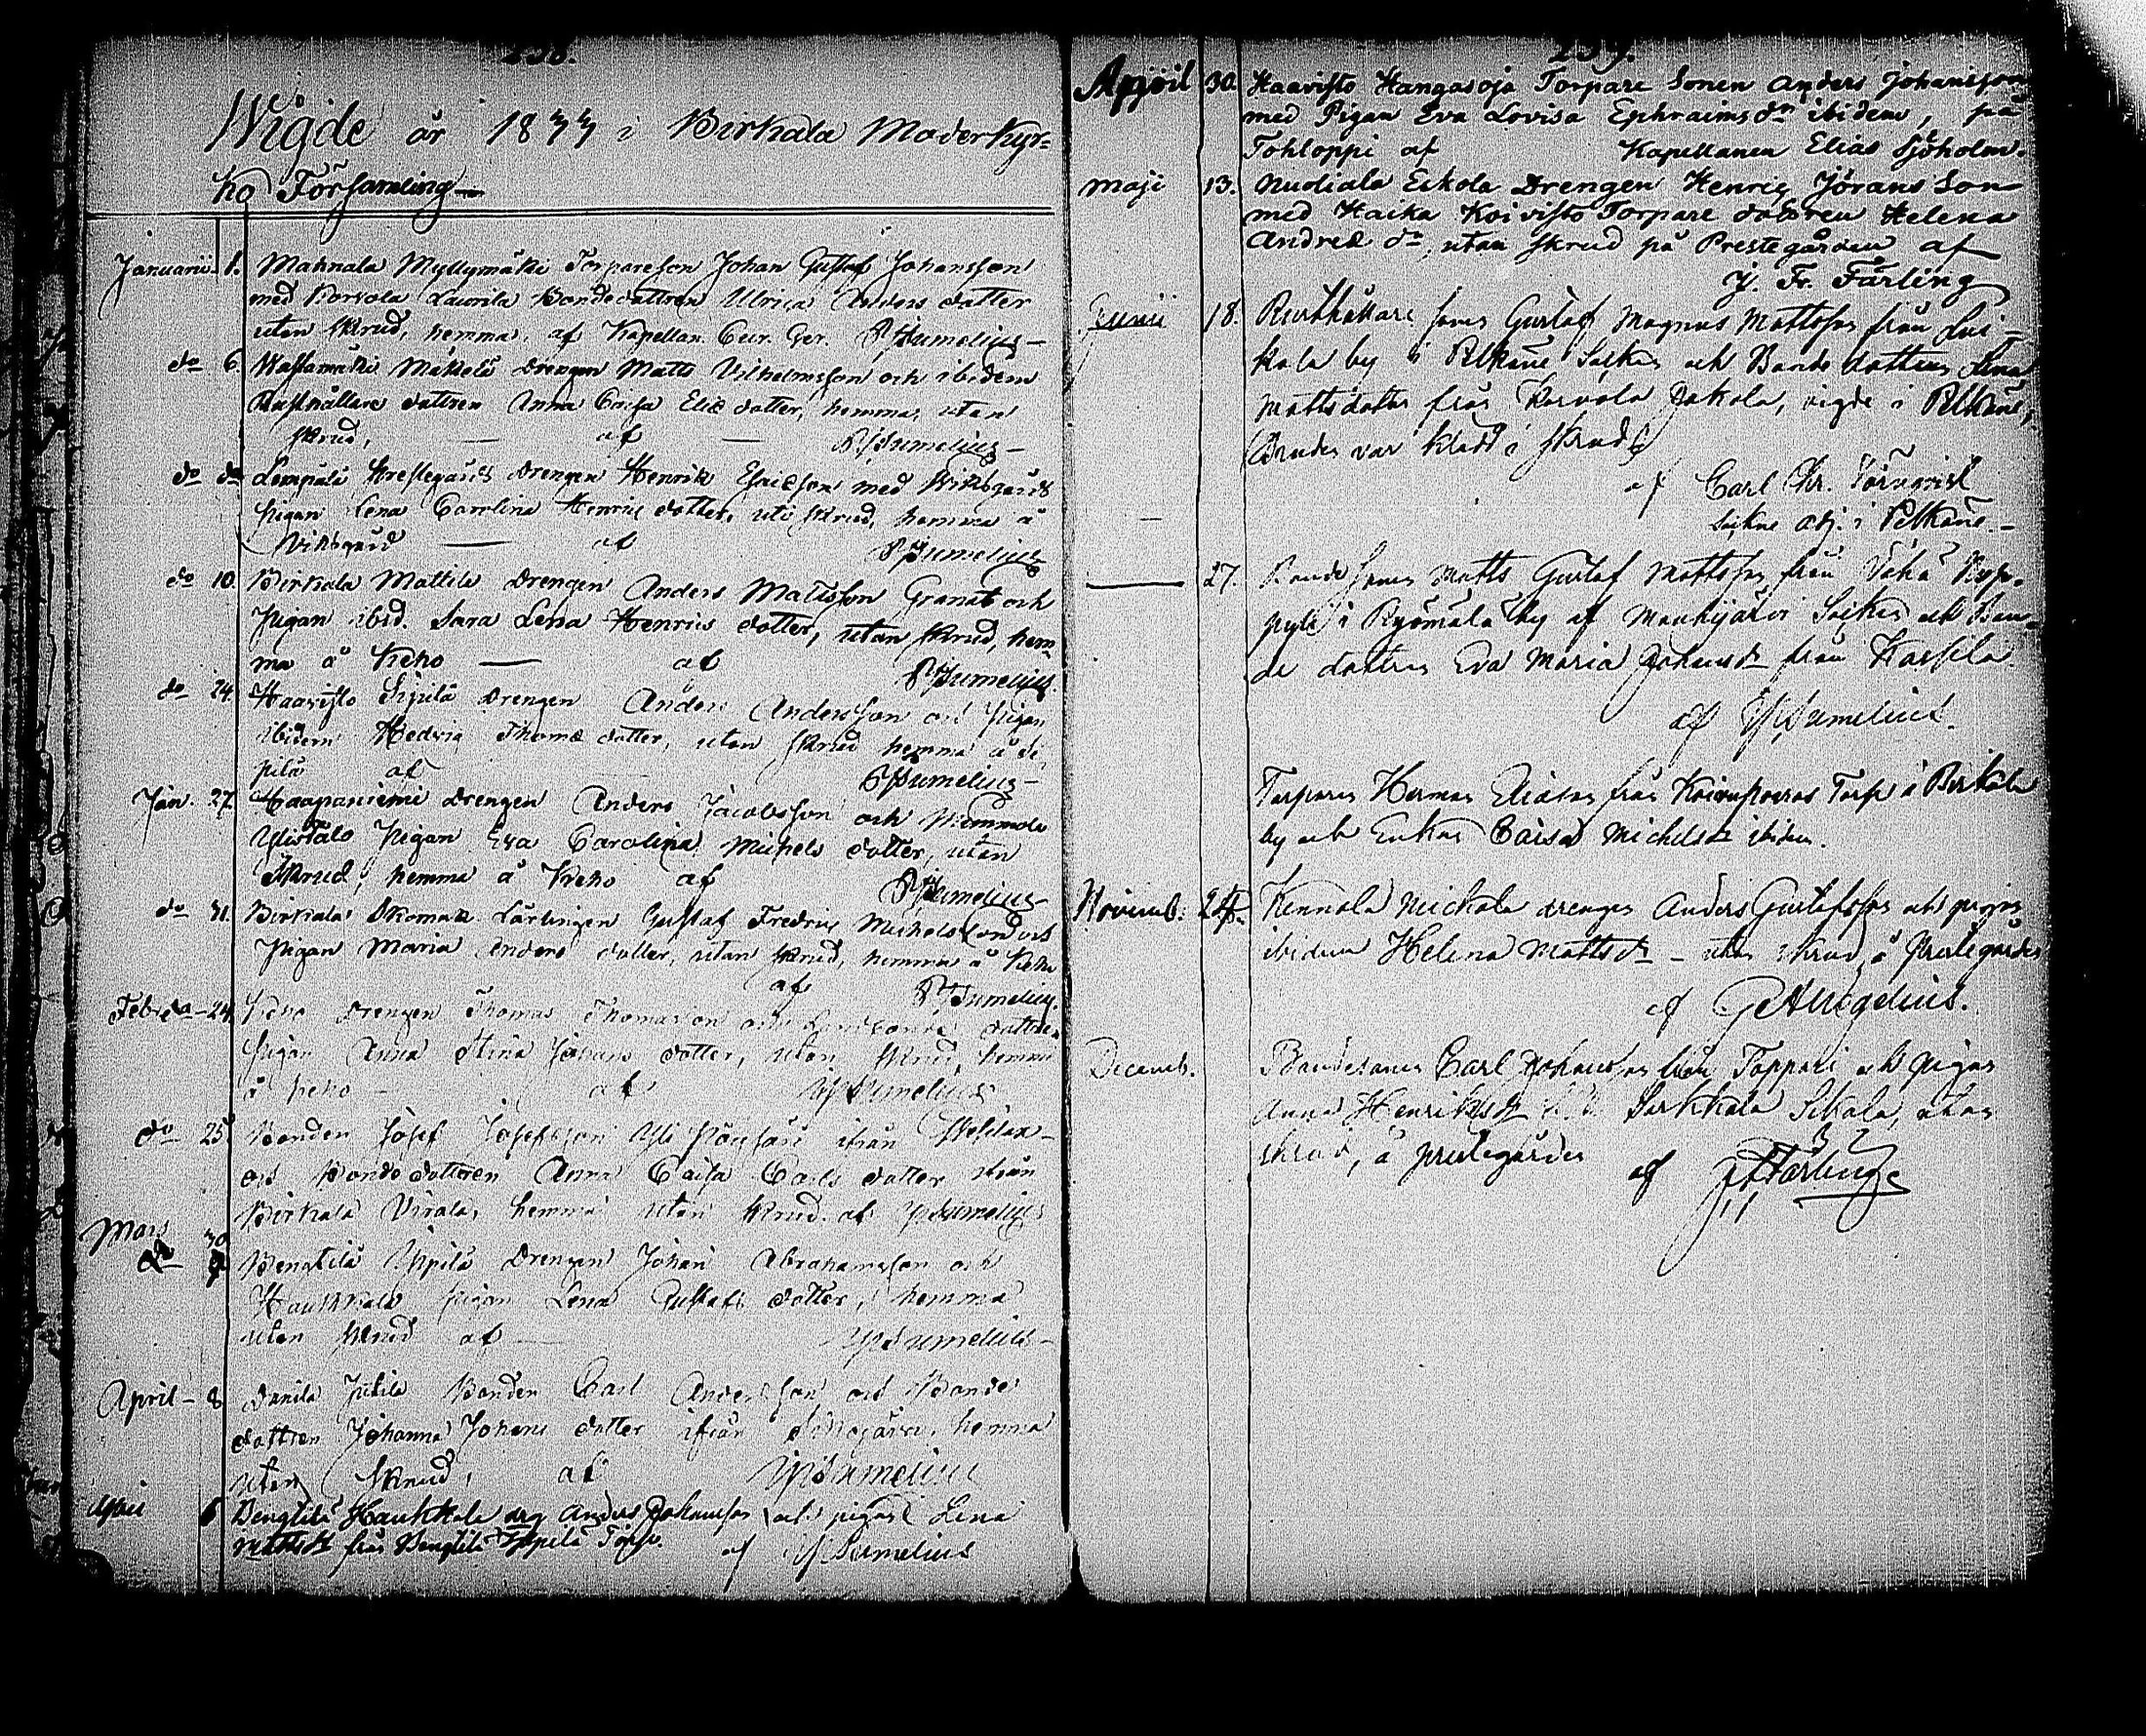 238.
Wigde år 1833 i Birkala Moderkyr=
ko Församling
Januarii 1. Mahnala Myllymäki Torpareson Johan Gustaf Johansson
med Porvola Laurila Bondedottren Ulrica Anders dotter
utan skrud, hemma, af Kapellan P Sumelius
do 6. Mäkelä Drengen Matts Vilhelmsson och ibidem
Rusthållare dottren Anna Caisa Eliæ dotter, hemma, utan
skrud, af P Sumelius
do do Lempälä Prestegårds drengen Henrik med
pigan Lena Carolina Henrics dotter, uti skrud, hemma å
af P Sumelius
do 10. Birkala Mattila Drengen Anders Mattsson Granat och
Pigan ibid. Sara Lena Henrics dotter, utan skrud, hem=
ma å Keho af P Sumelius
do 24. Haavisto Sipilä Drengen Anders Andersson och pigan
ibidem Hedvig Thomæ dotter, utan skrud hemma å Si
pilä af P Sumelius
Jan. 27. Haapaniemi Drengen Anders Jacobsson och
Ylistalo Pigan Eva Carolina Michels dotter, utan
skrud, hemma å Keho af P Sumelius
do 31. Birkala Skomak. Lärlingen Gustaf Fredric Michelsson och
Pigan Maria Anders dotter, utan skrud, hemma å Keho
af P Sumelius.
24. Keho Drengen Thomas Thomasson och
Pigan Anna Stina Johans dotter, utan skrud, hemma
å Keho af P Sumelius
do 25. Bonden Josef Josefsson Yli ifrån
och Bonde dottren Anna Caisa Carls dotter ifrån
Birkala Virala, hemma utan skrud. af P Sumelius
Mars 30
do Bengtilä Yppilä Drengen Johan Abrahamsson och
Haukkala pigan Lena Gustafs dotter, hemma
utan skrud af P Sumelius
April 8 Jutila Bonden Carl Andersson och Bonde
dottren Johanna Johans dotter ifrån hemma
utan skrud, af P Sumelius
April 6 Bengtilä Haukkala drg Anders Johansson och pigan Lena
Mattsdr från Bengtilä Yppilä Torp. af P Sumelius
239.
April 30. Haavisto Hangasoja Torpare Sonen Anders Johansson
med Pigan Eva Lovisa Ephraims dr ibidem, på
Tohloppi af Kapellanen Elias Sjöholm.
Maji 13. Nuoliala Eskola Drengen Henric Jörans Son
med Haika Koivisto Torpare dottren Helena
Andreæ dr, utan skrud på Prestegården af
J. Fr. Färling
Junii 18. Rusthållare sonen Gustaf Magnus Mattsson från Lui-
kala by i Pelkäne Socken och Bonde dottren Lena
Mattsdotter från Korvola Jakola, vigde i Pelkäne,
Bruden var klädd i skrud
af Carl Chr. Törnqvist
Sockne adj. i Pelkäne.
27. Bonde sonen Matts Gustaf Mattsson från Vähä Kyp-
pylä i Ryömälä by af Mouhijärvi Socken och Bon-
de dottren Eva Maria Johansdr från Kassila.
af P Sumelius.
Torparen Herman Eliasson från Torp i Birkala
by och Enkan Caisa Michelsdr ibidem.
Novemb: 24. Kennola Mickola drengen Anders Gustafsson och pigan
ibidem Helena Mattsdr - utan skrud, å Prestegården
af
Decemb. Bondesonen Carl Johansson från Toppari och pigan
Anna Henriksdr Sorkkala Sikala, utan
skrud, å prestegården af J F Färling